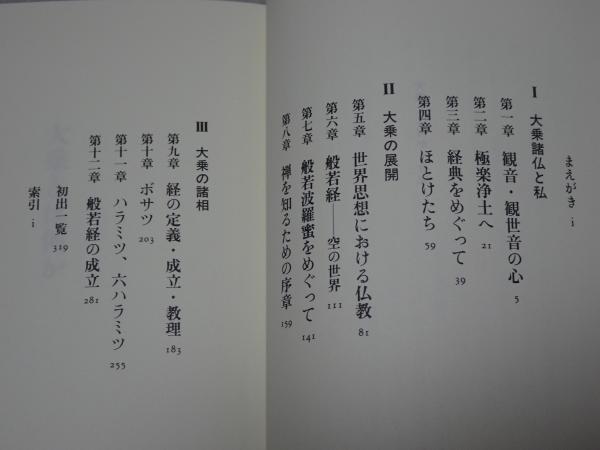 まえがき i
I 大乗諸仏と私
第一章 観音・観世音の心 5
第二章 極楽浄土へ 21
第三章 経典をめぐって 39
第四章 ほとけたち 59
II 大乗の展開
第五章 世界思想における仏教 81
第六章 般若経――空の世界 111
第七章 般若波羅蜜をめぐって 141
第八章 禅を知るための序章 159
III 大乗の諸相
第九章 経の定義・成立・教理 183
第十章 ボサツ 203
第十一章 ハラミツ、六ハラミツ 255
第十二章 般若経の成立 281
初出一覧 319
索引 i